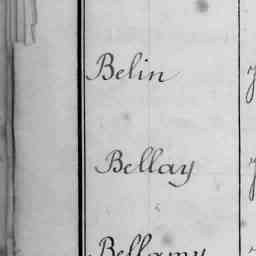 Belin
Bellay
Bellamy